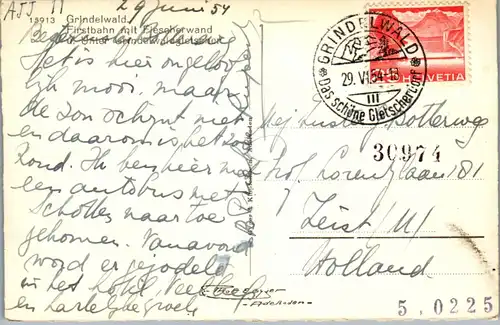 AJJ 11 29 Juni 54
15913 Grindelwald
Firstbahn mit Fiescherwand
Het is hier ongeloof
lijk mooi, maar
de zon schijnt niet
en daarom is het zo
koud. Ik ben hier met
een autobus met
Schotten naar toe
gekomen. Vanavond
word er gejodeld
in het hotel, Veel
en hartelijke groet
GRINDELWALD
29.VI.54-18
III
das schöne Gletscherdorf
HELVETIA
Mej
30974
Prof Lorentzlaan 181
Zeist /U/
Holland
5.0225